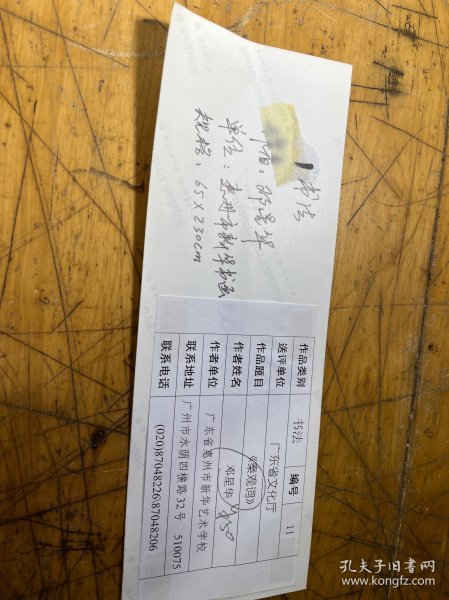 书法
作者：邓星华
单位：惠州市新华书画
规格：65×230cm
作品类别 书法 编号 11
送评单位 广东省文化厅
作品题目 《秦观词》
作者姓名 邓星华
作者单位 广东省惠州市新华艺术学校
联系地址 广州市水荫四横路32号 510075
联系电话 (020)87048226\87048206
孔夫子旧书网
www.kongfz.com